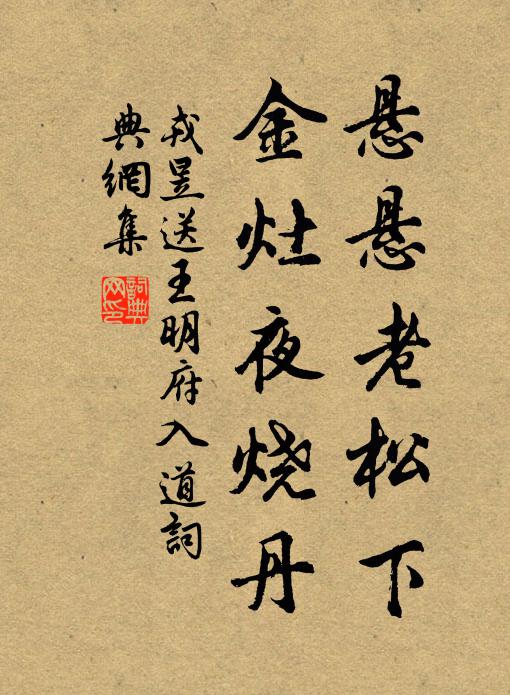 悬悬老松下
金灶夜烧丹
戎昱送王明府入道詞
典網集
詞典
网印